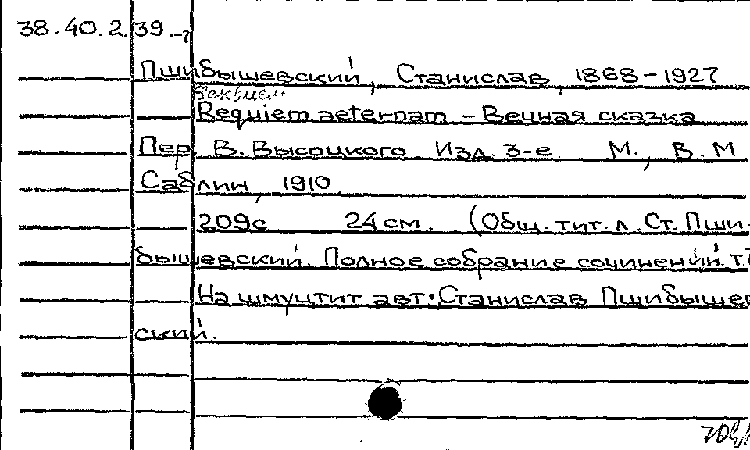 38.40.2.39.-7
Пшибышевский, Станислав, 1868-1927
Реквием
Requiem aeternam - Вечная сказка
Пер. В. Высоцкого. Изд. 3-е М., В.М
Саблин, 1910.
209с 24см. (Общ. тит. л. Ст. Пши-
бышевский. Полное собрание сочинений. т.
На шмуцтит авт: Станислав Пшибышев
ский.